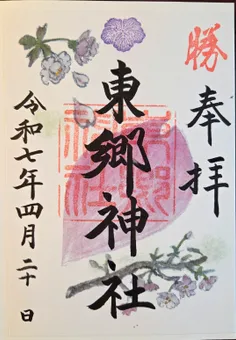 勝
奉拝
東郷神社
令和七年四月二十日